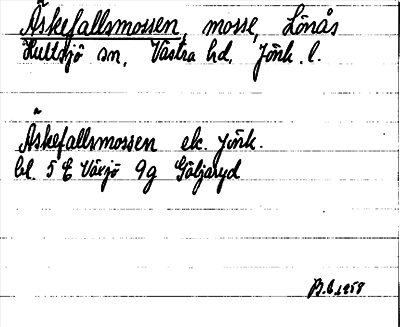 Åskefallsmossen, mosse, Lönås
Hultsjö sn, Västra hd, Jönk. l.
Åskefallsmossen ek. Jönk.
bl. 5 E Växjö 9g Göljaryd
B.E. 1958